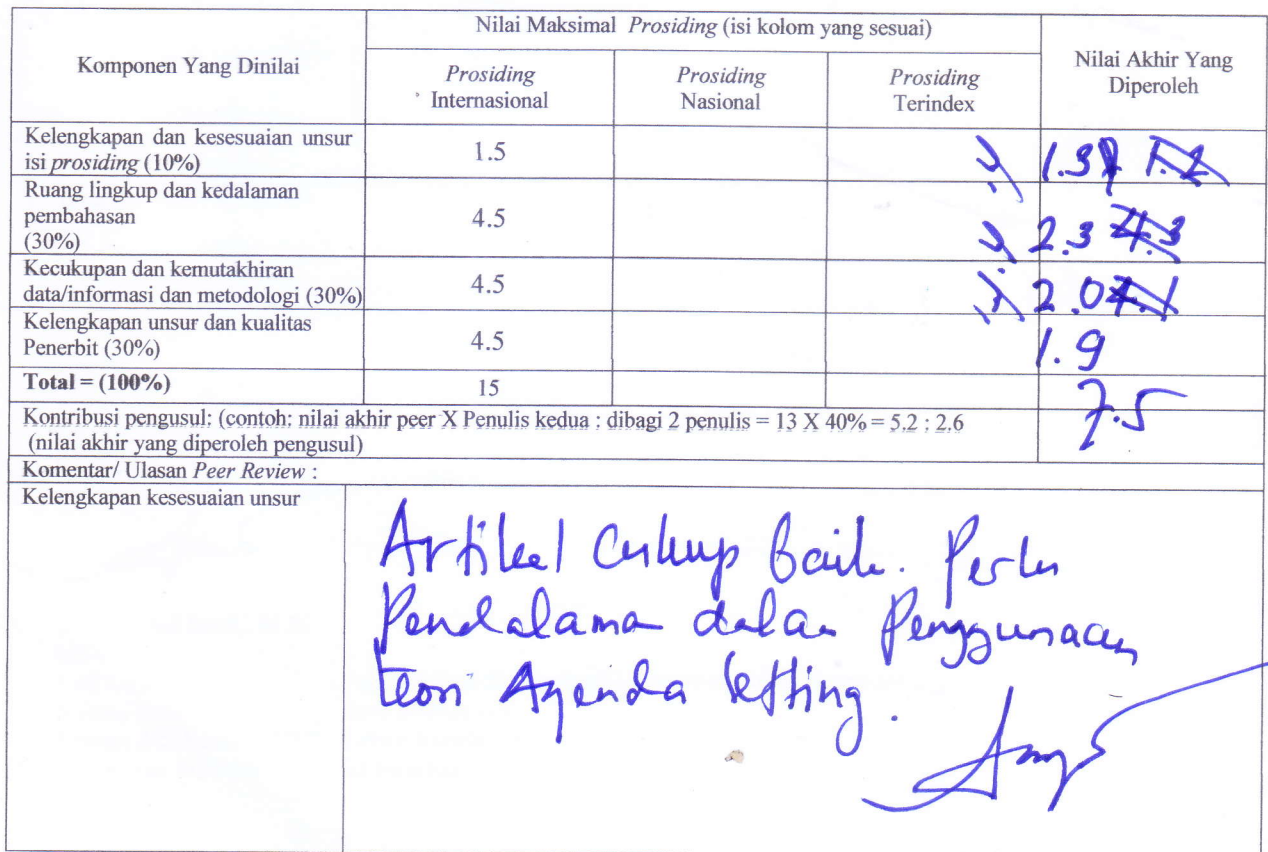 Komponen Yang Dinilai
Nilai Maksimal Prosiding (isi kolom yang sesuai)
Nilai Akhir Yang
Diperoleh
Prosiding
Internasional
Prosiding
Nasional
Prosiding
Terindex
Kelengkapan dan kesesuaian unsur
isi prosiding (10%)
1.5
1.3
Ruang lingkup dan kedalaman
pembahasan
(30%)
4.5
2.3 4.3
Kecukupan dan kemutakhiran
data/informasi dan metodologi (30%)
4.5
2.0 4.1
Kelengkapan unsur dan kualitas
Penerbit (30%)
4.5
1.9
Total = (100%)
15
7.5
Kontribusi pengusul: (contoh: nilai akhir peer X Penulis kedua : dibagi 2 penulis = 13 X 40% = 5.2 : 2.6
(nilai akhir yang diperoleh pengusul)
Komentar/ Ulasan Peer Review :
Kelengkapan kesesuaian unsur
Artikel Cukup Baik. Perlu
Pendalama dalam Penggunaan
teori Agenda Setting.